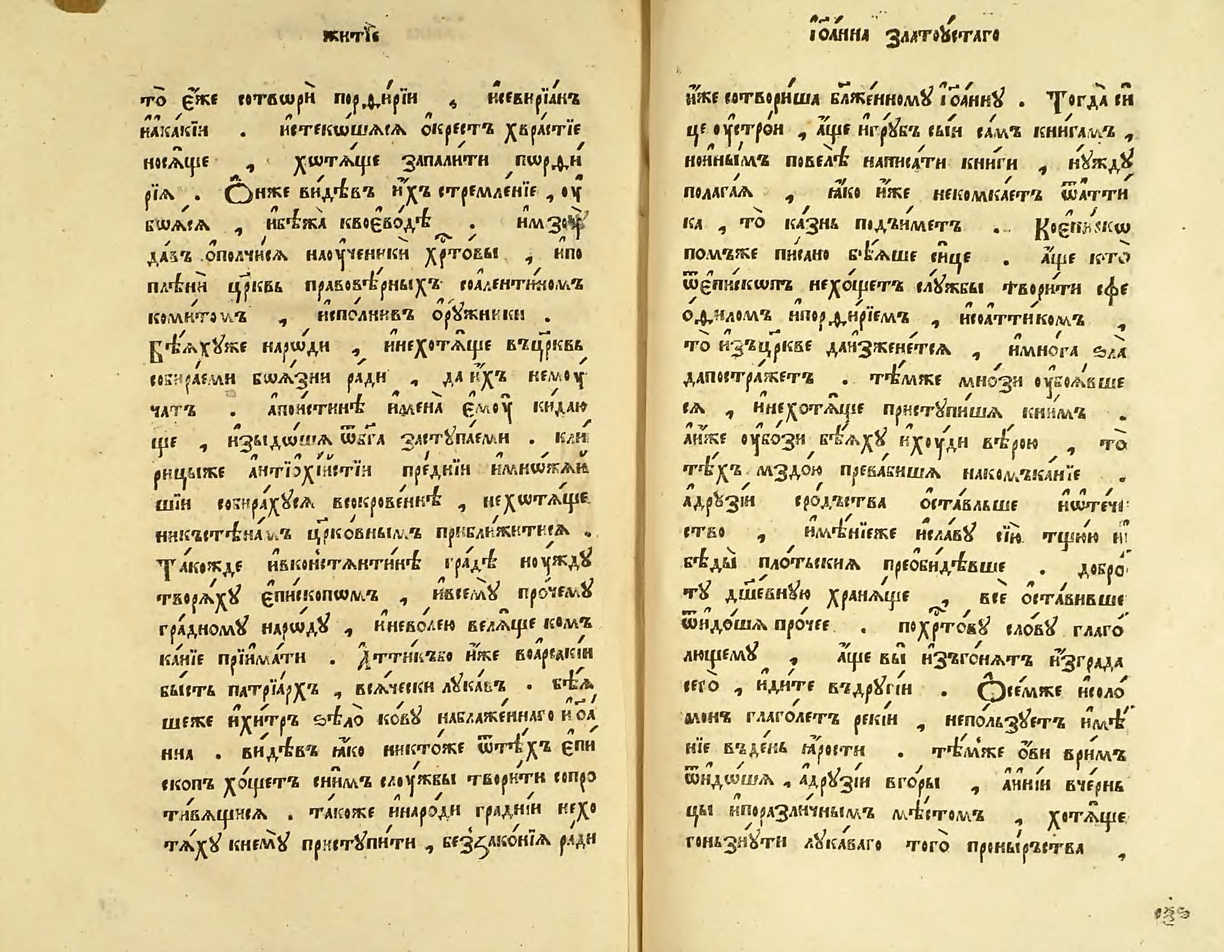 житїе
то̀ є҆́же сотвѡрѝ порѳи́рїи , и҆севирїа́нъ
и҆ака́кїи . и҆стекѡ́шѧсѧ ѻ҆́крестъ хврастїе
носѧ́ще , хѡтѧ́ще запали́ти пѡрѳи́
рїѧ . Ѻ҆́нже ви́дѣвъ и҆́хъ стремле́нїе , оу҆
боѧсѧ , и҆бѣжа̀ квоєво́дѣ .
да́въ ѡполчи́сѧ наоу҆ченикѝ хрⷭ҇то́вы , и҆по
плѣнѝ цр҃квь правовѣ́рныхъ соале́нтїномъ
коми́томъ , и҆спо́лнивъ ѻ҆ру́жники .
Бѣѧ́хуже наро́ди , и҆нехотѧ́ще въцр҃квь
собира́еми боѧ́зни ра́ди , да и҆́хъ немоу́
чатъ . а҆пои́стинѣ и҆мена̀ є҆моу̀ кида́ю
ще , и҆зыдо́шѧ ѿбг҃а заступа́еми . кли́
рицыже а҆нтїохі́йстїи пре́днїи и҆мнѡжа́й
шїи собира́хусѧ воѡкрове́ннѣ , нехѡтѧ́ще
никъстѣна́мъ цр҃ко́внымъ прибли́житисѧ .
Та́кожде и҆вконъстѧнти́нѣ гра́дѣ ноу́жду
творѧ́ху є҆пи́скопѡмъ , и҆всемꙋ̀ про́чему
гра́дному наро́ду , и҆нево́лею велѧ́ще комъ
ка́нїе прїима́ти . А҆́ттикъбо и҆́же воа҆рса́кїи
бы́сть патрїа́рхъ , всѧ́чески лука́въ . бѣ́ѧ
шеже и҆хи́тръ ѕѣло̀ ко́ву наблаже́ннаго и҆ѻ҆а́
нна . ви́дѣвъ ꙗ҆́ко никто́же ѿтѣ́хъ є҆пи́
скопъ хо́щетъ сни́мъ слоу́жбы твори́ти сопро
ти́вѧщисѧ . та́коже и҆наро́ди гра́днїи нехо
тѧ́ху кнемꙋ̀ приступи́ти , беззако́нїѧ ра́ди
і҆ѻа́нна златоу́стаго
и҆́же сотвори́ша бл҃же́нному і҆ѻа́нну . Тогда̀ си́
це оу҆стро́и , а҆́ще и҆гру́бъ сы́и са́мъ кни́гамъ ,
нои҆ны́мъ повелѣ̀ написа́ти кни́ги , ну́жду
полага́ѧ , ꙗ҆́ко и҆́же некомка́етъ ѿа҆тти
ка , то̀ ка́знь подъи́метъ . Коє҆пи́скѡ
помъже пи́сано бѣѧ́ше си́це . а҆́ще кто̀
ѿє҆пи́скопъ нехо́щетъ слу́жбы твори́ти сѳе
ѻ҆́ѳиломъ и҆порѳи́рїемъ , и҆соа́ттикомъ ,
то̀ и҆зъцр҃кве даизжене́тсѧ , и҆мно́га ѕла̀
дапостра́жетъ . тѣ́мже мно́зи оу҆боѧ́вше
сѧ , и҆нехотѧ́ще приступи́шѧ кни́мъ .
а҆и҆́же оу҆бо́зи бѣѧ́ху и҆худи вѣ́рою , то̀
тѣ́хъ мздо́ю превабишѧ накомъка́нїе .
а҆друзі́и сро́дъства ѻ҆ста́вльше и҆ѡте́че
ство , и҆мѣ́нїеже и҆сла́ву сїю̀ тщи́ю и҆
бѣды̀ пло́тьскиѧ преоби́дѣвше . добро
ту дш҃е́вную хранѧ́ще , всѐ ѻ҆ста́вивше
ѿидо́шѧ про́чее . похрⷭ҇то́ву сло́ву глаго́
лющему , а҆́ще вы̀ и҆зъго́нѧтъ и҆згра́да
сего̀ , и҆ди́те въдругі́и . Ѻ҆се́мже и҆соло
мо́нъ глаго́летъ реки́и , непо́льзуетъ и҆мѣ́
нїе въде́нь ꙗ҆́рости . тѣ́мже ѻ҆́виври́мъ
ѿидо́шѧ , а҆друзі́и вго́ры , а҆и҆ні́и вче́рнь
цы и҆поразли́чнымъ мѣ́стомъ , хотѧ́ще
гоньзну́ти лука́ваго того̀ проны́рьства ,